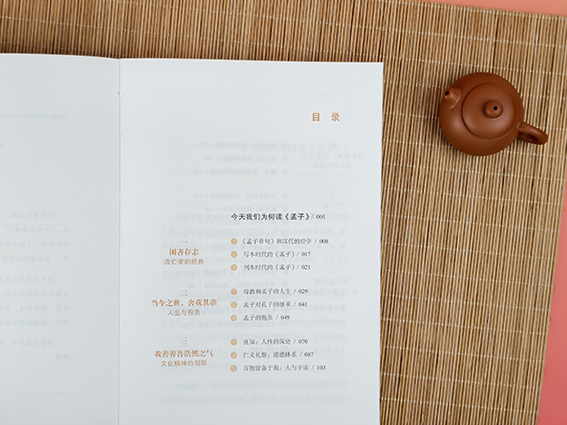 目 录
今天我们为何读《孟子》/ 001
一
存志
流亡者的经典
《孟子章句》和汉代的经学 / 008
写本时代的《孟子》/ 017
刊本时代的《孟子》/ 021
二
当今之世，舍我其谁
人生与抱负
母教和孟子的人生 / 029
孟子对孔子的继承 / 041
孟子的抱负 / 049
三
我善养吾浩然之气
文化精神的创新
良知：人性的深处 / 070
仁义礼智：道德体系 / 087
万物皆备于我：人与宇宙 / 103